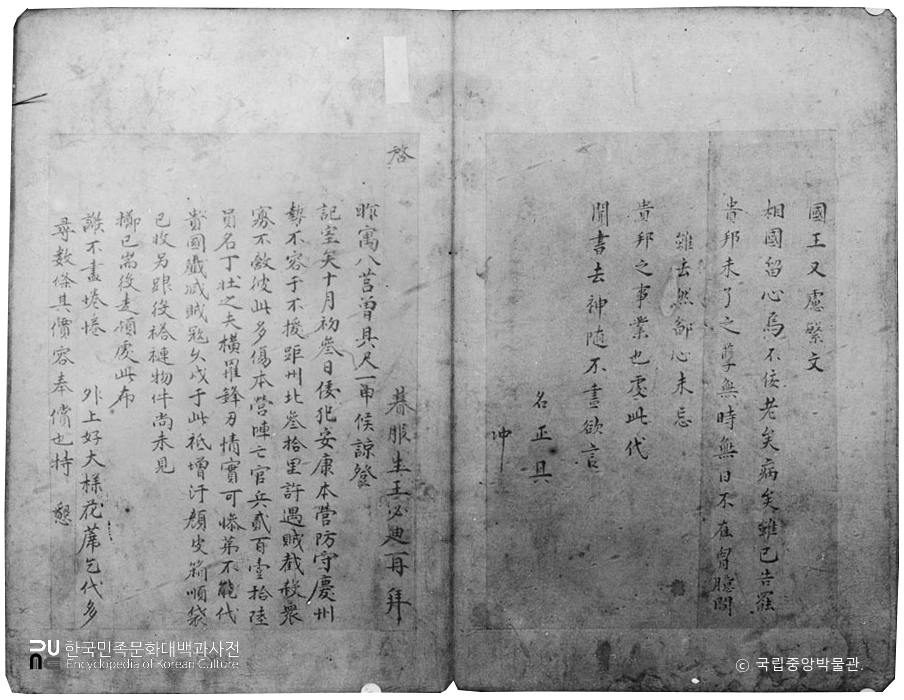 國王又慮繁文
相國留心焉不佞老矣病矣雖已告罷
貴邦未了之孽無時無日不在胸臆間
雖去然鄙心未忘
貴邦之事業也處此代
聞書去神隨不盡欲言
名正具
冲
啓
暮服生王必迪再拜
昨寓八莒曾具尺一申候諒登
記室矣十月初叁日倭犯安康本營防守慶州
勢不容于不援距州北叁拾里許遇賊截殺衆
寡不敵彼此多傷本營陣亡官兵貳百壹拾陸
員名丁壯之夫橫罹鋒刃情實可慘第不能代
貴國殲滅賊寇久戍于此祗增汗顔皮箱順袋
已收另跟役褡褳物件尚未見
擲已耑役走領處此布
謝不盡惓惓 外上好大樣花席乞代多
尋數條其價容奉償也特 懇
한국민족문화대백과사전
Encyclopedia of Korean Culture
© 국립중앙박물관